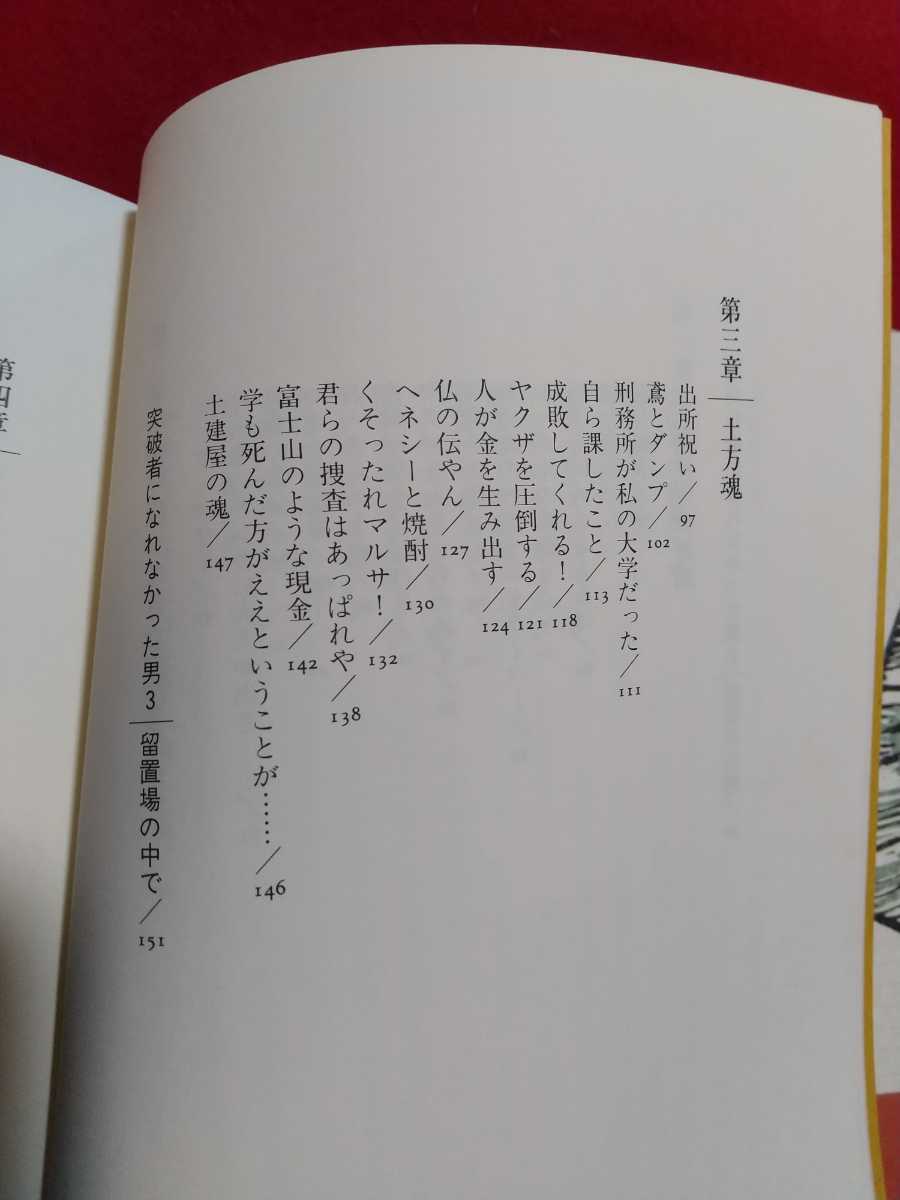 第三章――土方魂
出所祝い／97
鳶とダンプ／102
刑務所が私の大学だった／111
自ら課したこと／113
成敗してくれる！／118
ヤクザを圧倒する／121
人が金を生み出す／124
仏の伝やん／127
ヘネシーと焼酎／130
くそったれマルサ！／132
君らの捜査はあっぱれや／138
富士山のような現金／142
学も死んだ方がええということが……／146
土建屋の魂／147
突破者になれなかった男3――留置場の中で／151
第四章―